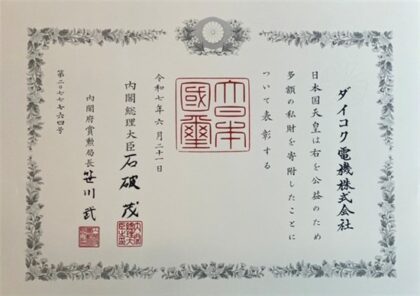 ダイコク電機株式会社
日本国天皇は右を公益のため
多額の私財を寄附したことに
ついて表彰する
大日本
國璽
令和七年六月二十一日
内閣総理大臣 石破茂
内閣府賞勲局長 笹川武
第二〇七七六四号